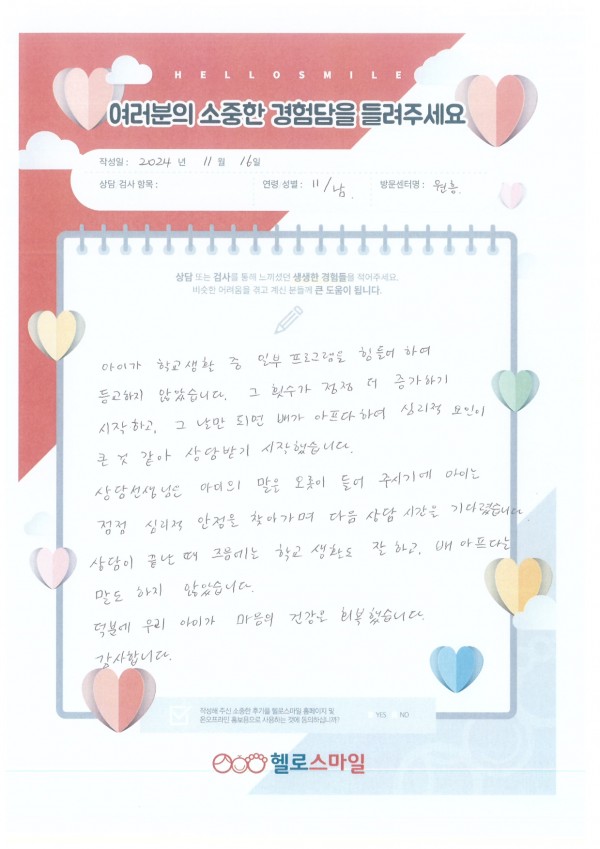 HELLOSMILE
여러분의 소중한 경험담을 들려주세요
작성일 : 2024 년 11 월 16 일
상담 검사 항목 : 연령 성별 : 11/남. 방문센터명 : 원흥.
상담 또는 검사를 통해 느끼셨던 생생한 경험들을 적어주세요.
비슷한 어려움을 겪고 계신 분들께 큰 도움이 됩니다.
아이가 학교생활 중 일부 프로그램을 힘들어 하여
등교하지 않았습니다. 그 횟수가 점점 더 증가하기
시작하고, 그 날만 되면 배가 아프다하여 심리적 요인이
큰 것 같아 상담받기 시작했습니다.
상담선생님은 아이의 말을 오롯이 들어 주시기에 아이는
점점 심리적 안정을 찾아가며 다음 상담 시간을 기다렸습니다.
상담이 끝난 때 즈음에는 학교 생활도 잘 하고, 배 아프다는
말도 하지 않았습니다.
덕분에 우리 아이가 마음의 건강을 회복했습니다.
감사합니다.
작성해 주신 소중한 후기를 헬로스마일 홈페이지 및
온오프라인 홍보용으로 사용하는 것에 동의하십니까? YES NO
헬로스마일